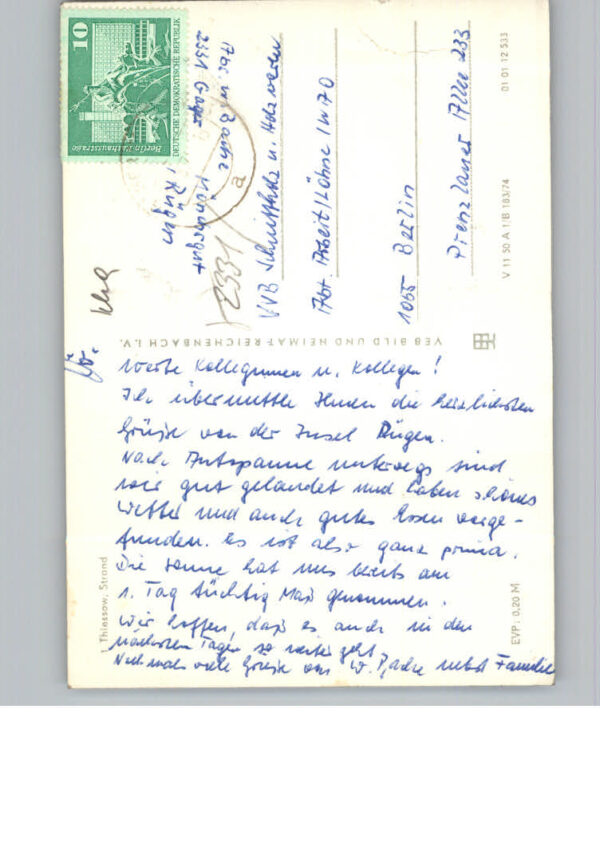 Werte Kolleginnen u. Kollegen!
Ich übermittle Ihnen die herzlichsten
Grüße von der Insel Rügen.
Nach Autopanne unterwegs sind
wir gut gelandet und haben schönes
Wetter und auch gutes Essen vorge-
funden. Es ist also ganz prima.
Die Sonne hat uns bereits am
1. Tag tüchtig Maß genommen.
Wir hoffen, daß es auch in den
nächsten Tagen so weiter geht.
Nochmals viele Grüße von W. nebst Familie
Thiessow, Strand
EVP: 0,20 M
VEB BILD UND HEIMAT REICHENBACH I. V.
V 11 50 A 1/B 183/74
01 01 12 533
10
DEUTSCHE DEMOKRATISCHE REPUBLIK
Berlin-Rathausstraße
2331
a
Abs. W.
2331
Rügen
VVB Schnittholz u. Holzwaren
Abt. Arbeit/Löhne
1055 Berlin
Prenzlauer Allee 233